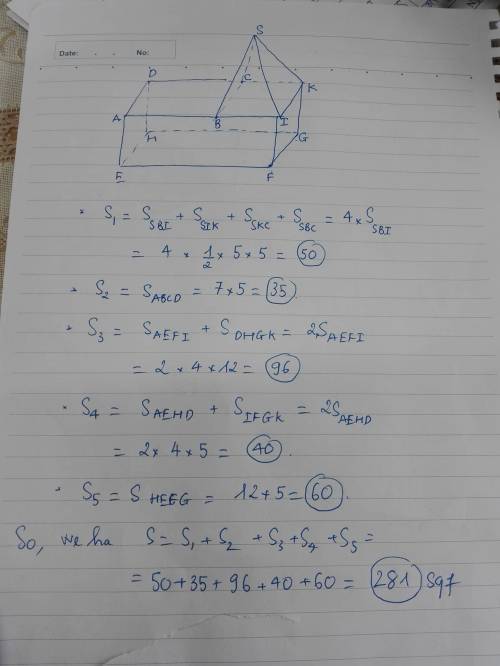 Date: . . No:
S
D C K
A B I
H G
E F
* S₁ = S_SBI + S_SIK + S_SKC + S_SBC = 4 * S_SBI
= 4 * 1/2 * 5 * 5 = 50
* S₂ = S_ABCD = 7*5 = 35.
* S₃ = S_AEFI + S_DHGK = 2S_AEFI
= 2 * 4 * 12 = 96
* S₄ = S_AEHD + S_IFGK = 2S_AEHD
= 2 * 4 * 5 = 40.
* S₅ = S_HEFG = 12 * 5 = 60.
So, we ha S = S₁ + S₂ + S₃ + S₄ + S₅ =
= 50 + 35 + 96 + 40 + 60 = 281 Sqf